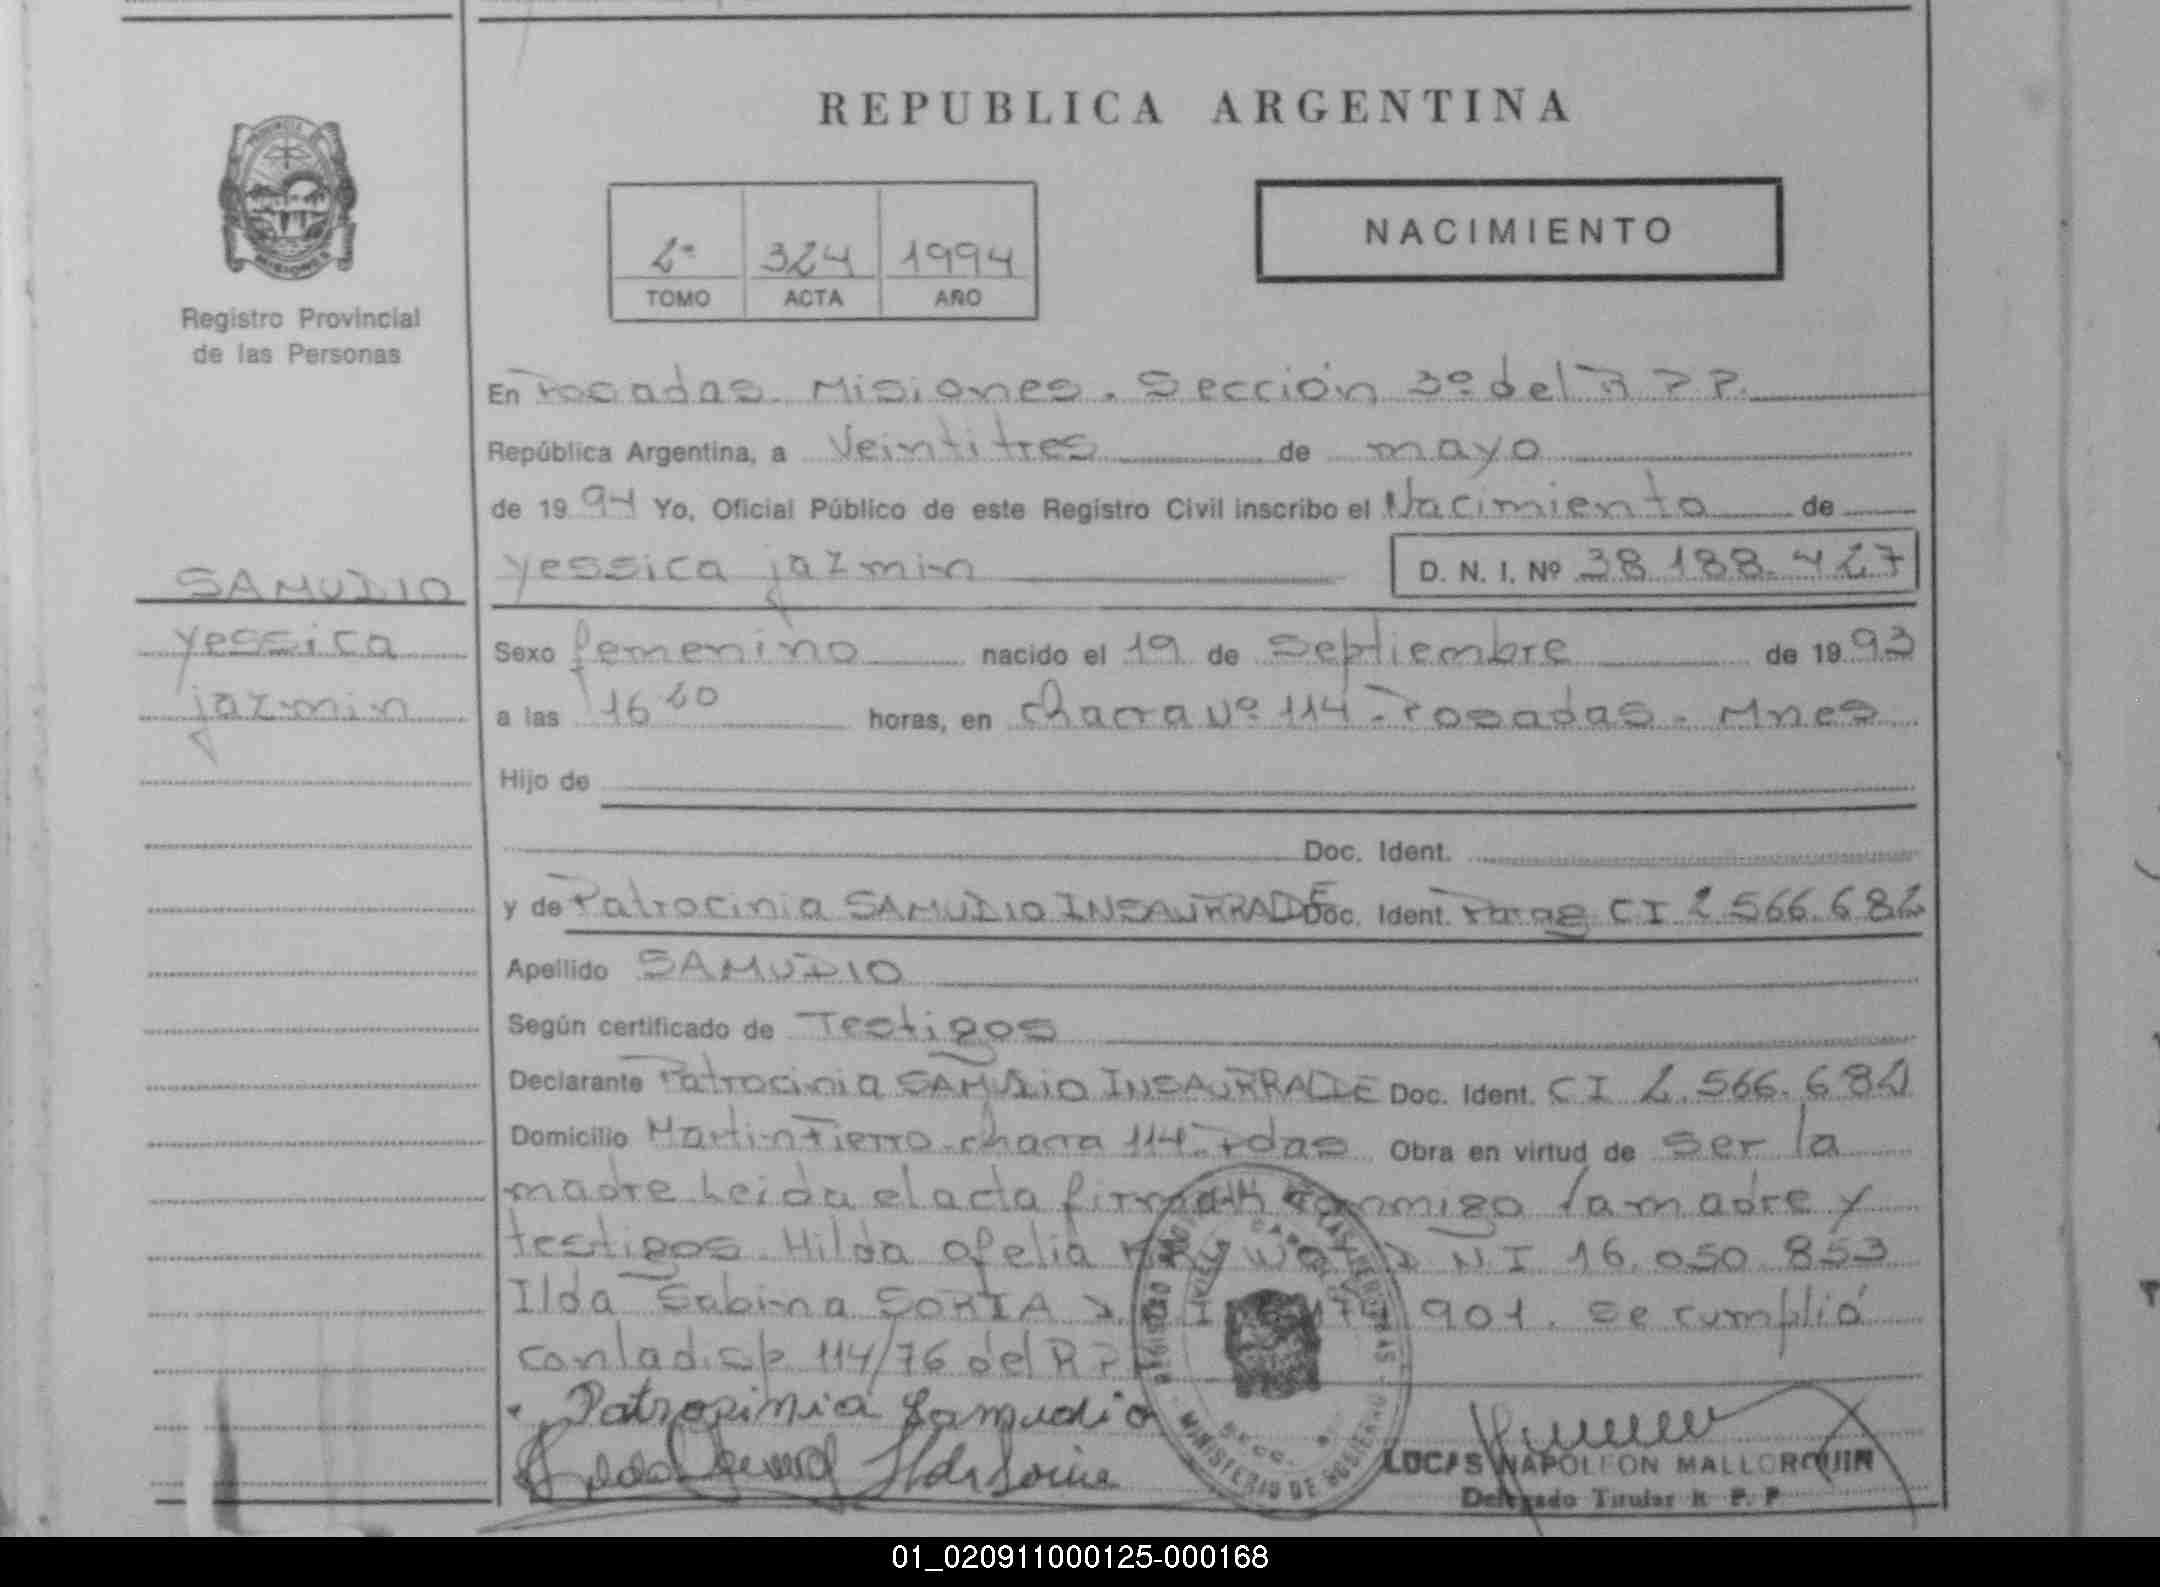 REPUBLICA ARGENTINA
NACIMIENTO
2º 324 1994
TOMO ACTA AÑO
Registro Provincial
de las Personas
En Posadas. Misiones. Sección 3º del R P P.
República Argentina, a Veintitres de mayo
de 1994 Yo, Oficial Público de este Registro Civil inscribo el Nacimiento de
yessica jazmin D. N. I. Nº 38.188.427
SAMUDIO
yessica
jazmin
Sexo femenino nacido el 19 de Septiembre de 1993
a las 16 20 horas, en chacra Nº 114. Posadas. Mnes
Hijo de
Doc. Ident.
y de Patrocinia SAMUDIO INSAURRALDE Doc. Ident. Parag CI 2.566.682
Apellido SAMUDIO
Según certificado de Testigos
Declarante Patrocinia SAMUDIO INSAURRALDE Doc. Ident. CI 2.566.682
Domicilio Martin Fierro. chacra 114. Pdas Obra en virtud de Ser la
madre Leida el acta firman conmigo la madre y
testigos. Hilda Ofelia D N I 16.050.853
Ilda Sabina SORIA D. I 901. Se cumplió
con la disp 114/76 del R P P
Patrocinia Samudio
Ilda Soria
MINISTERIO DE GOBIERNO
LUCAS NAPOLEON MALLORQUIN
Delegado Titular R. P. P
01_020911000125-000168